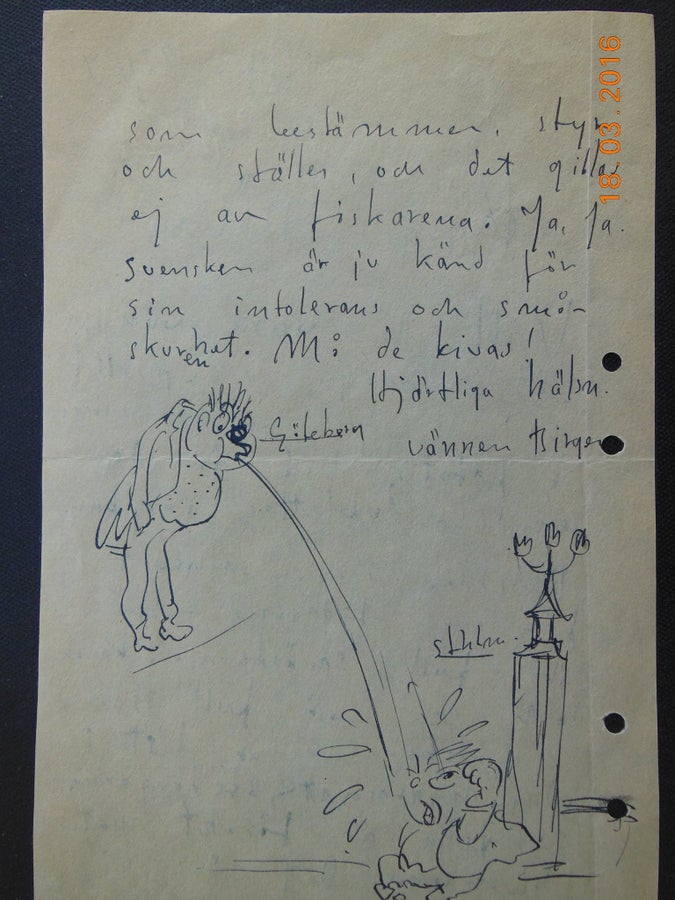 som bestämmer, styr
och ställer, och det gillas
ej av fiskarena. Ja, Ja.
svensken är ju känd för
sin intolerans och små-
skurenhet. M: de kivas!
Hjärtliga hälsn.
vännen Birger
Göteborg
sthlm.
18.03.2016